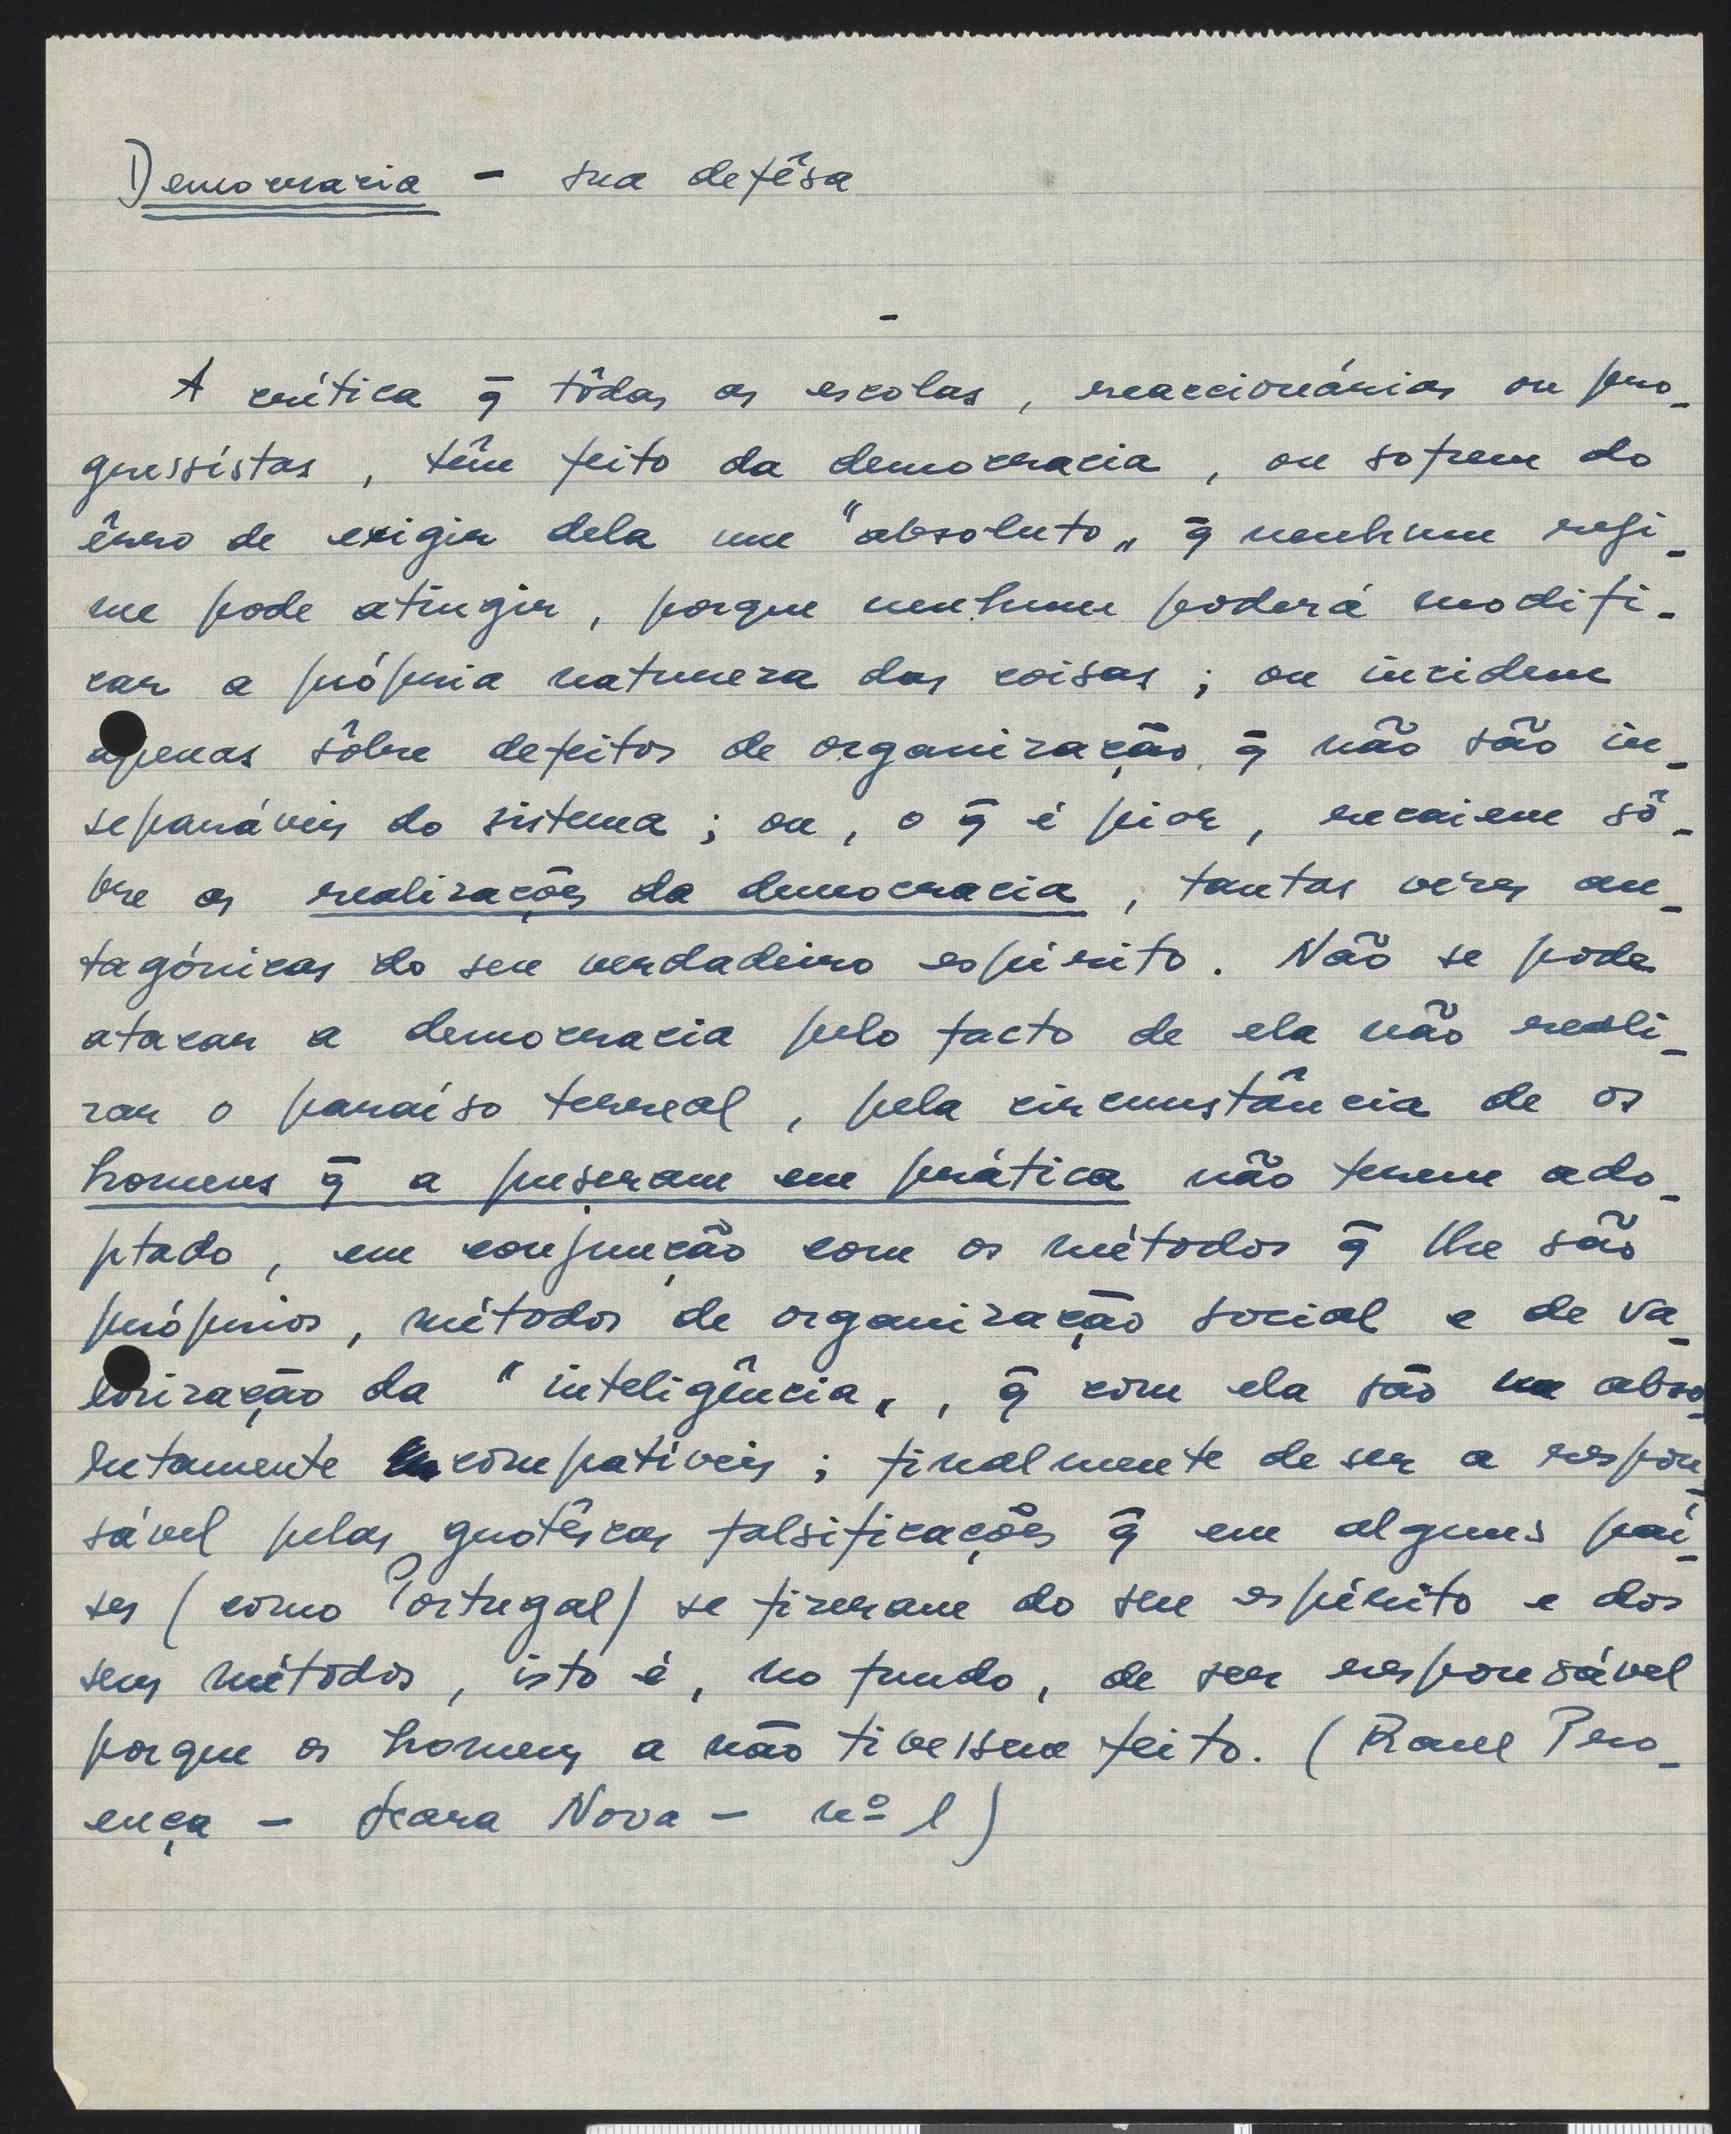 Democracia - sua defêsa
-
A crítica q̄ tôdas as escolas, reaccionárias ou pro-
gressistas, têm feito da democracia, ou sofrem do
êrro de exigir dela um "absoluto„ q̄ nenhum regi-
me pode atingir, porque nenhum poderá modifi-
car a própria natureza das coisas; ou incidem
apenas sôbre defeitos de organização q̄ não são in-
separáveis do sistema; ou, o q̄ é pior, recaiem sô-
bre as realizações da democracia, tantas vezes an-
tagónicas do seu verdadeiro espírito. Não se pode
atacar a democracia pelo facto de ela não reali-
zar o paraíso terreal, pela circunstância de os
homens q̄ a puseram em prática não terem ado-
ptado, em conjunção com os métodos q̄ lhe são
próprios, métodos de organização social e de va-
lorização da "inteligência„, q̄ com ela são abso-
lutamente compatíveis; finalmente de ser a respon-
sável pelas grotêscas falsificações q̄ em alguns paí-
ses (como Portugal) se fizeram do seu espírito e dos
seus métodos, isto é, no fundo, de ser responsável
porque os homens a não tivessem feito. (Raul Pro-
ença - Seara Nova - nº 1)